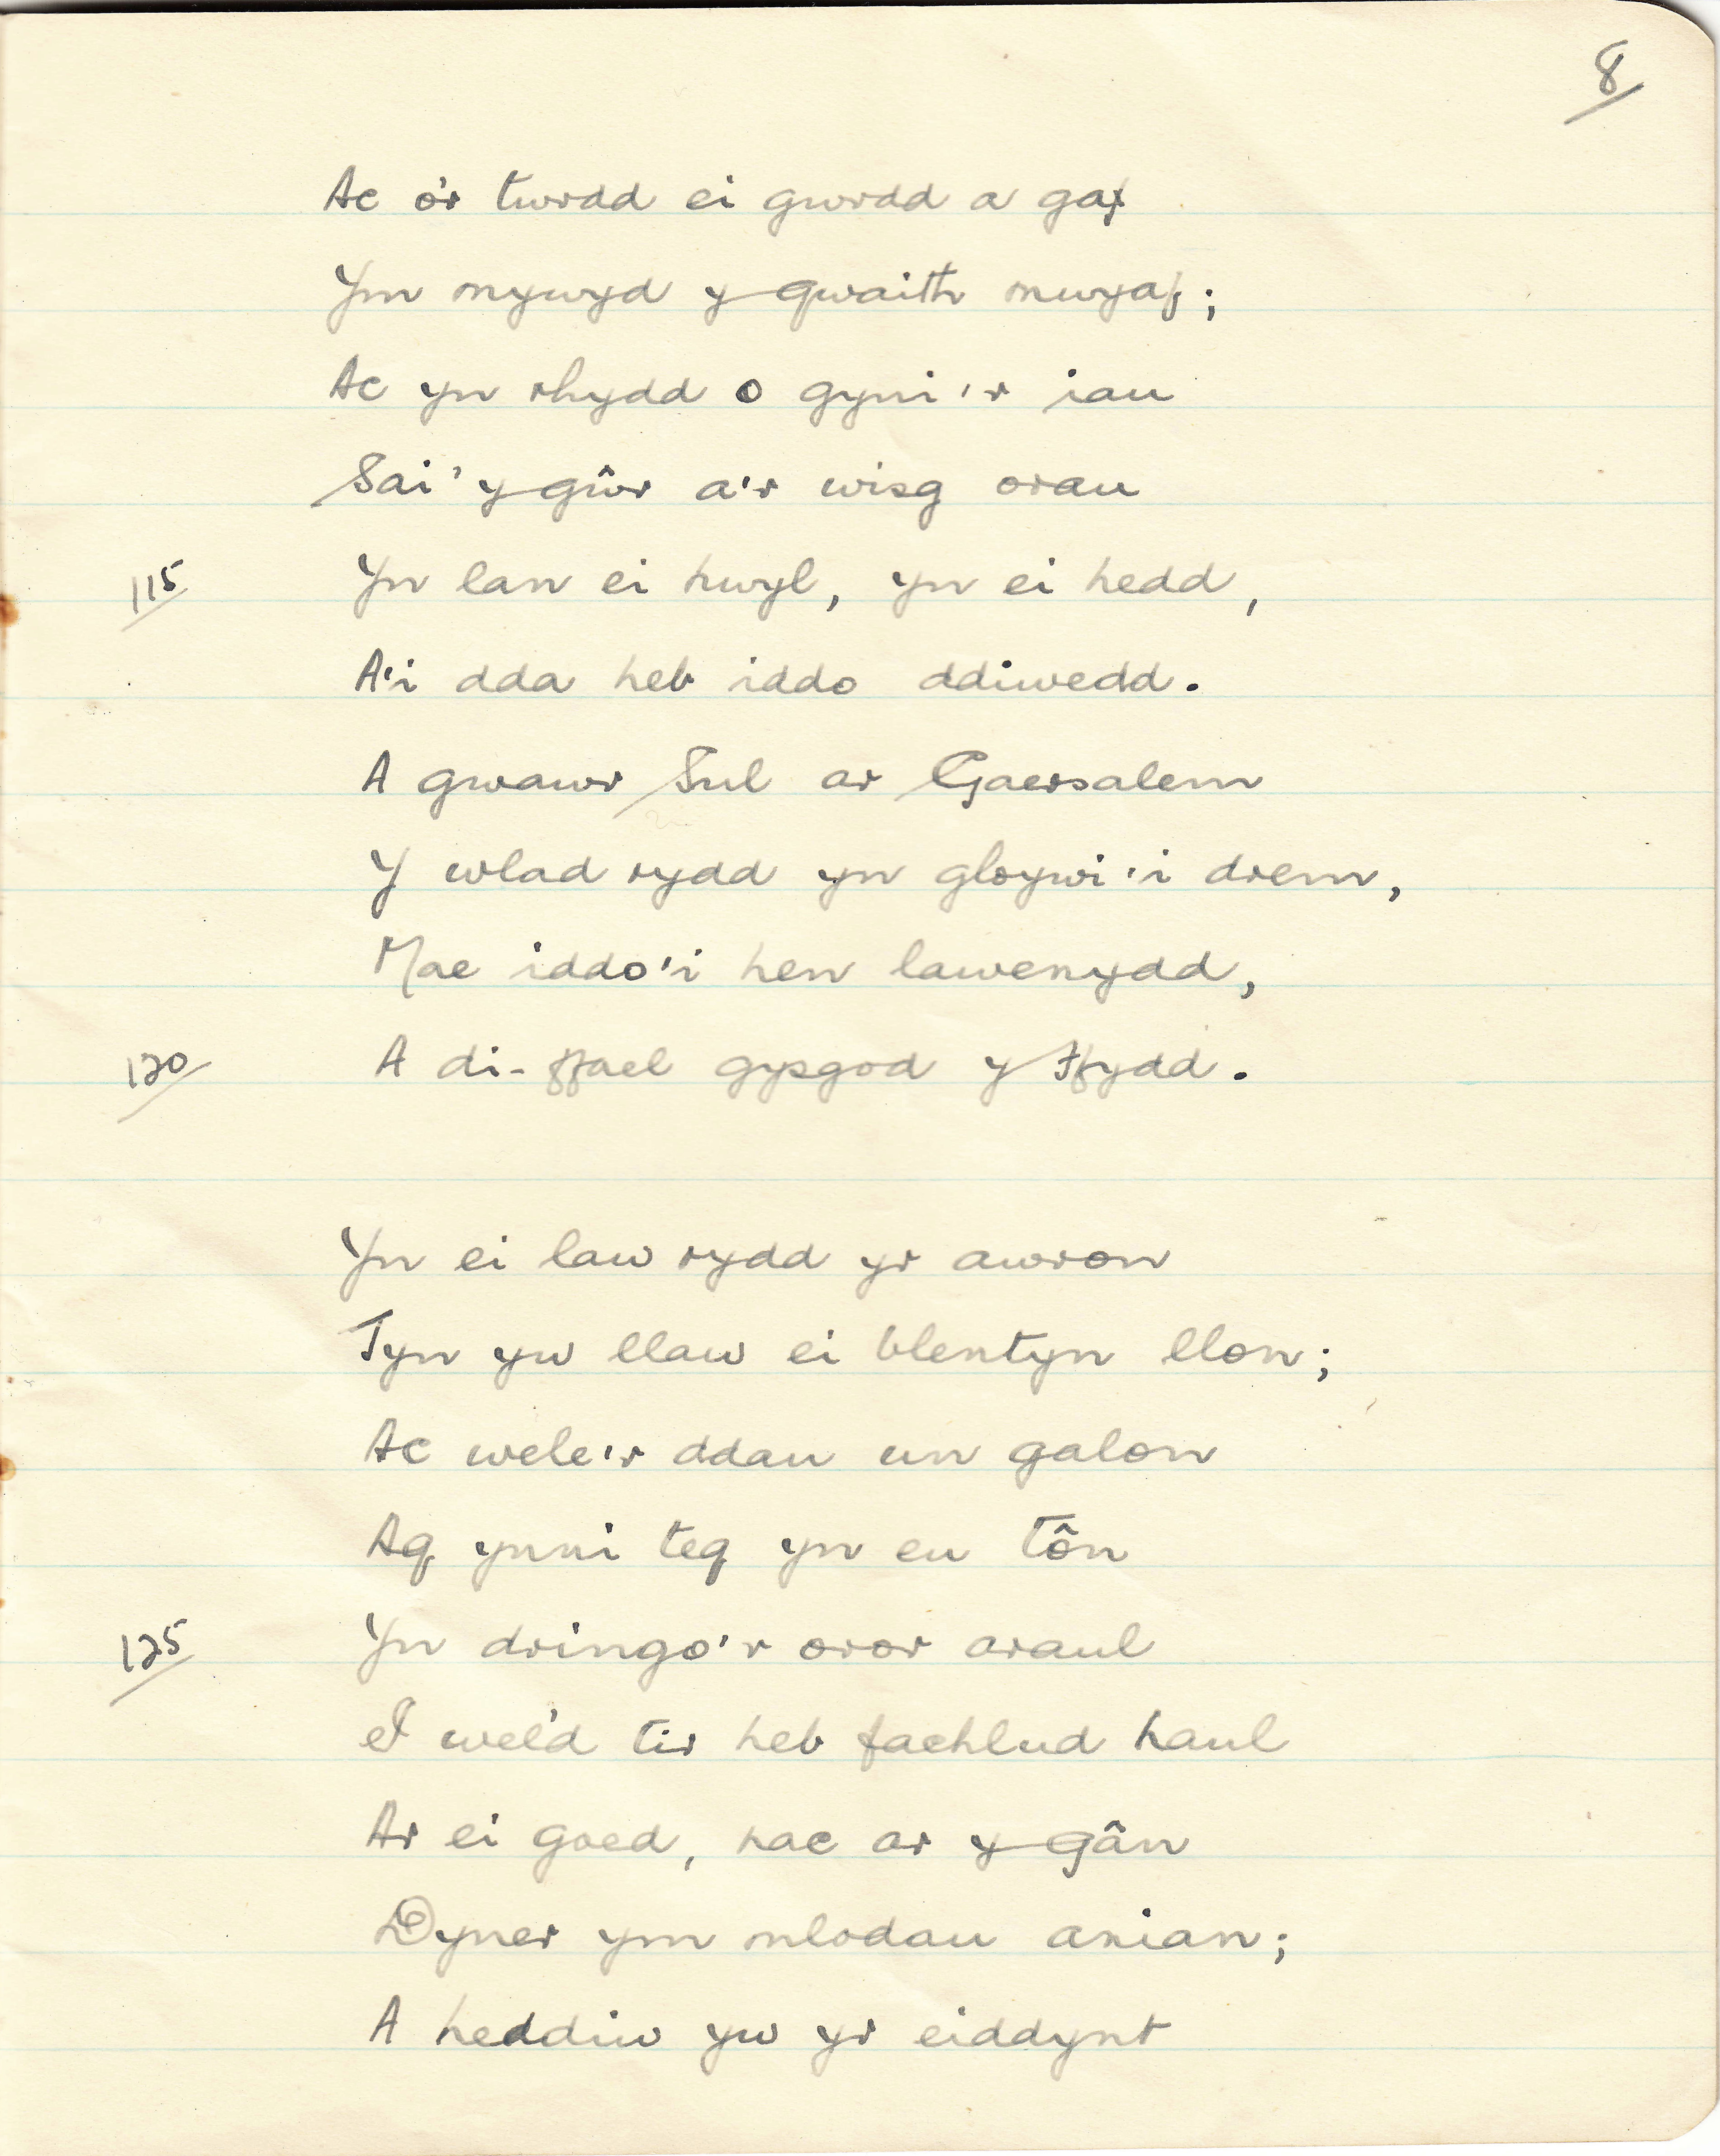 8
Ac o'r twrdd ei gwrdd a gaf
Ym mywyd y gwaith mwyaf;
Ac yn rhydd o gyni'r iau
Sai' y gŵr a'r wisg orau
115 Yn lan ei hwyl, yn ei hedd,
A'i dda heb iddo ddiwedd.
A gwawr Sul ar Gaersalem
Y wlad rydd yn gloywi'i drem,
Mae iddo'i hen lawenydd,
120 A di-ffael gysgod y Ffydd.
Yn ei law rydd yr awron
Tyn yw llaw ei blentyn llon;
Ac wele'r ddau un galon
Ag ynni teg yn eu tôn
125 Yn dringo'r oror araul
I wel'd tir heb fachlud haul
Ar ei goed, nac ar y gân
Dyner ym mlodau anian;
A heddiw yw yr eiddynt